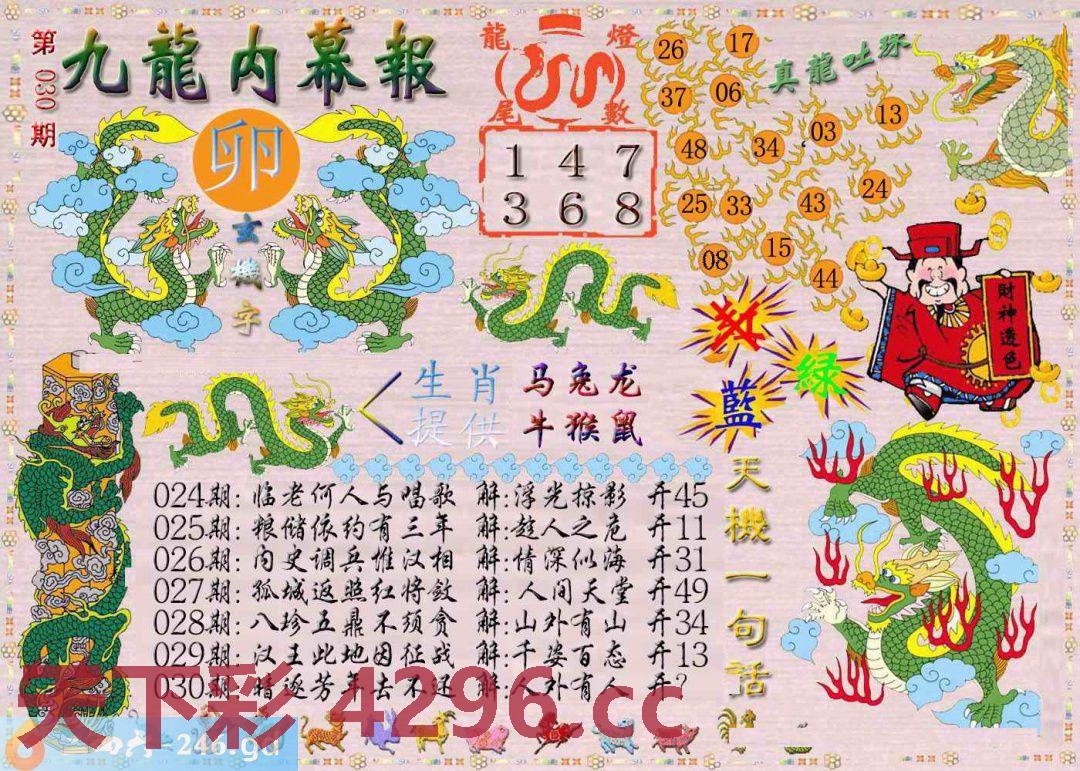 第030期
九龍内幕報
卵
玄機字
龍燈尾數
1 4 7
3 6 8
真龍吐珠
26 17
37 06
48 34 03 13
25 33 43 24
08 15 44
紅
綠
藍
財神透色
生肖提供
马兔龙
牛猴鼠
天機一句話
024期: 临老何人与唱歌 解:浮光掠影 开45
025期: 粮储依约有三年 解:趁人之危 开11
026期: 内史调兵惟汉相 解:情深似海 开31
027期: 孤城返照红将敛 解:人间天堂 开49
028期: 八珍五鼎不须贪 解:山外有山 开34
029期: 汉王此地因征战 解:千姿百态 开13
030期: 暗逐芳年去不还 解:人外有人 开?
天下彩 4296.cc
246.gd